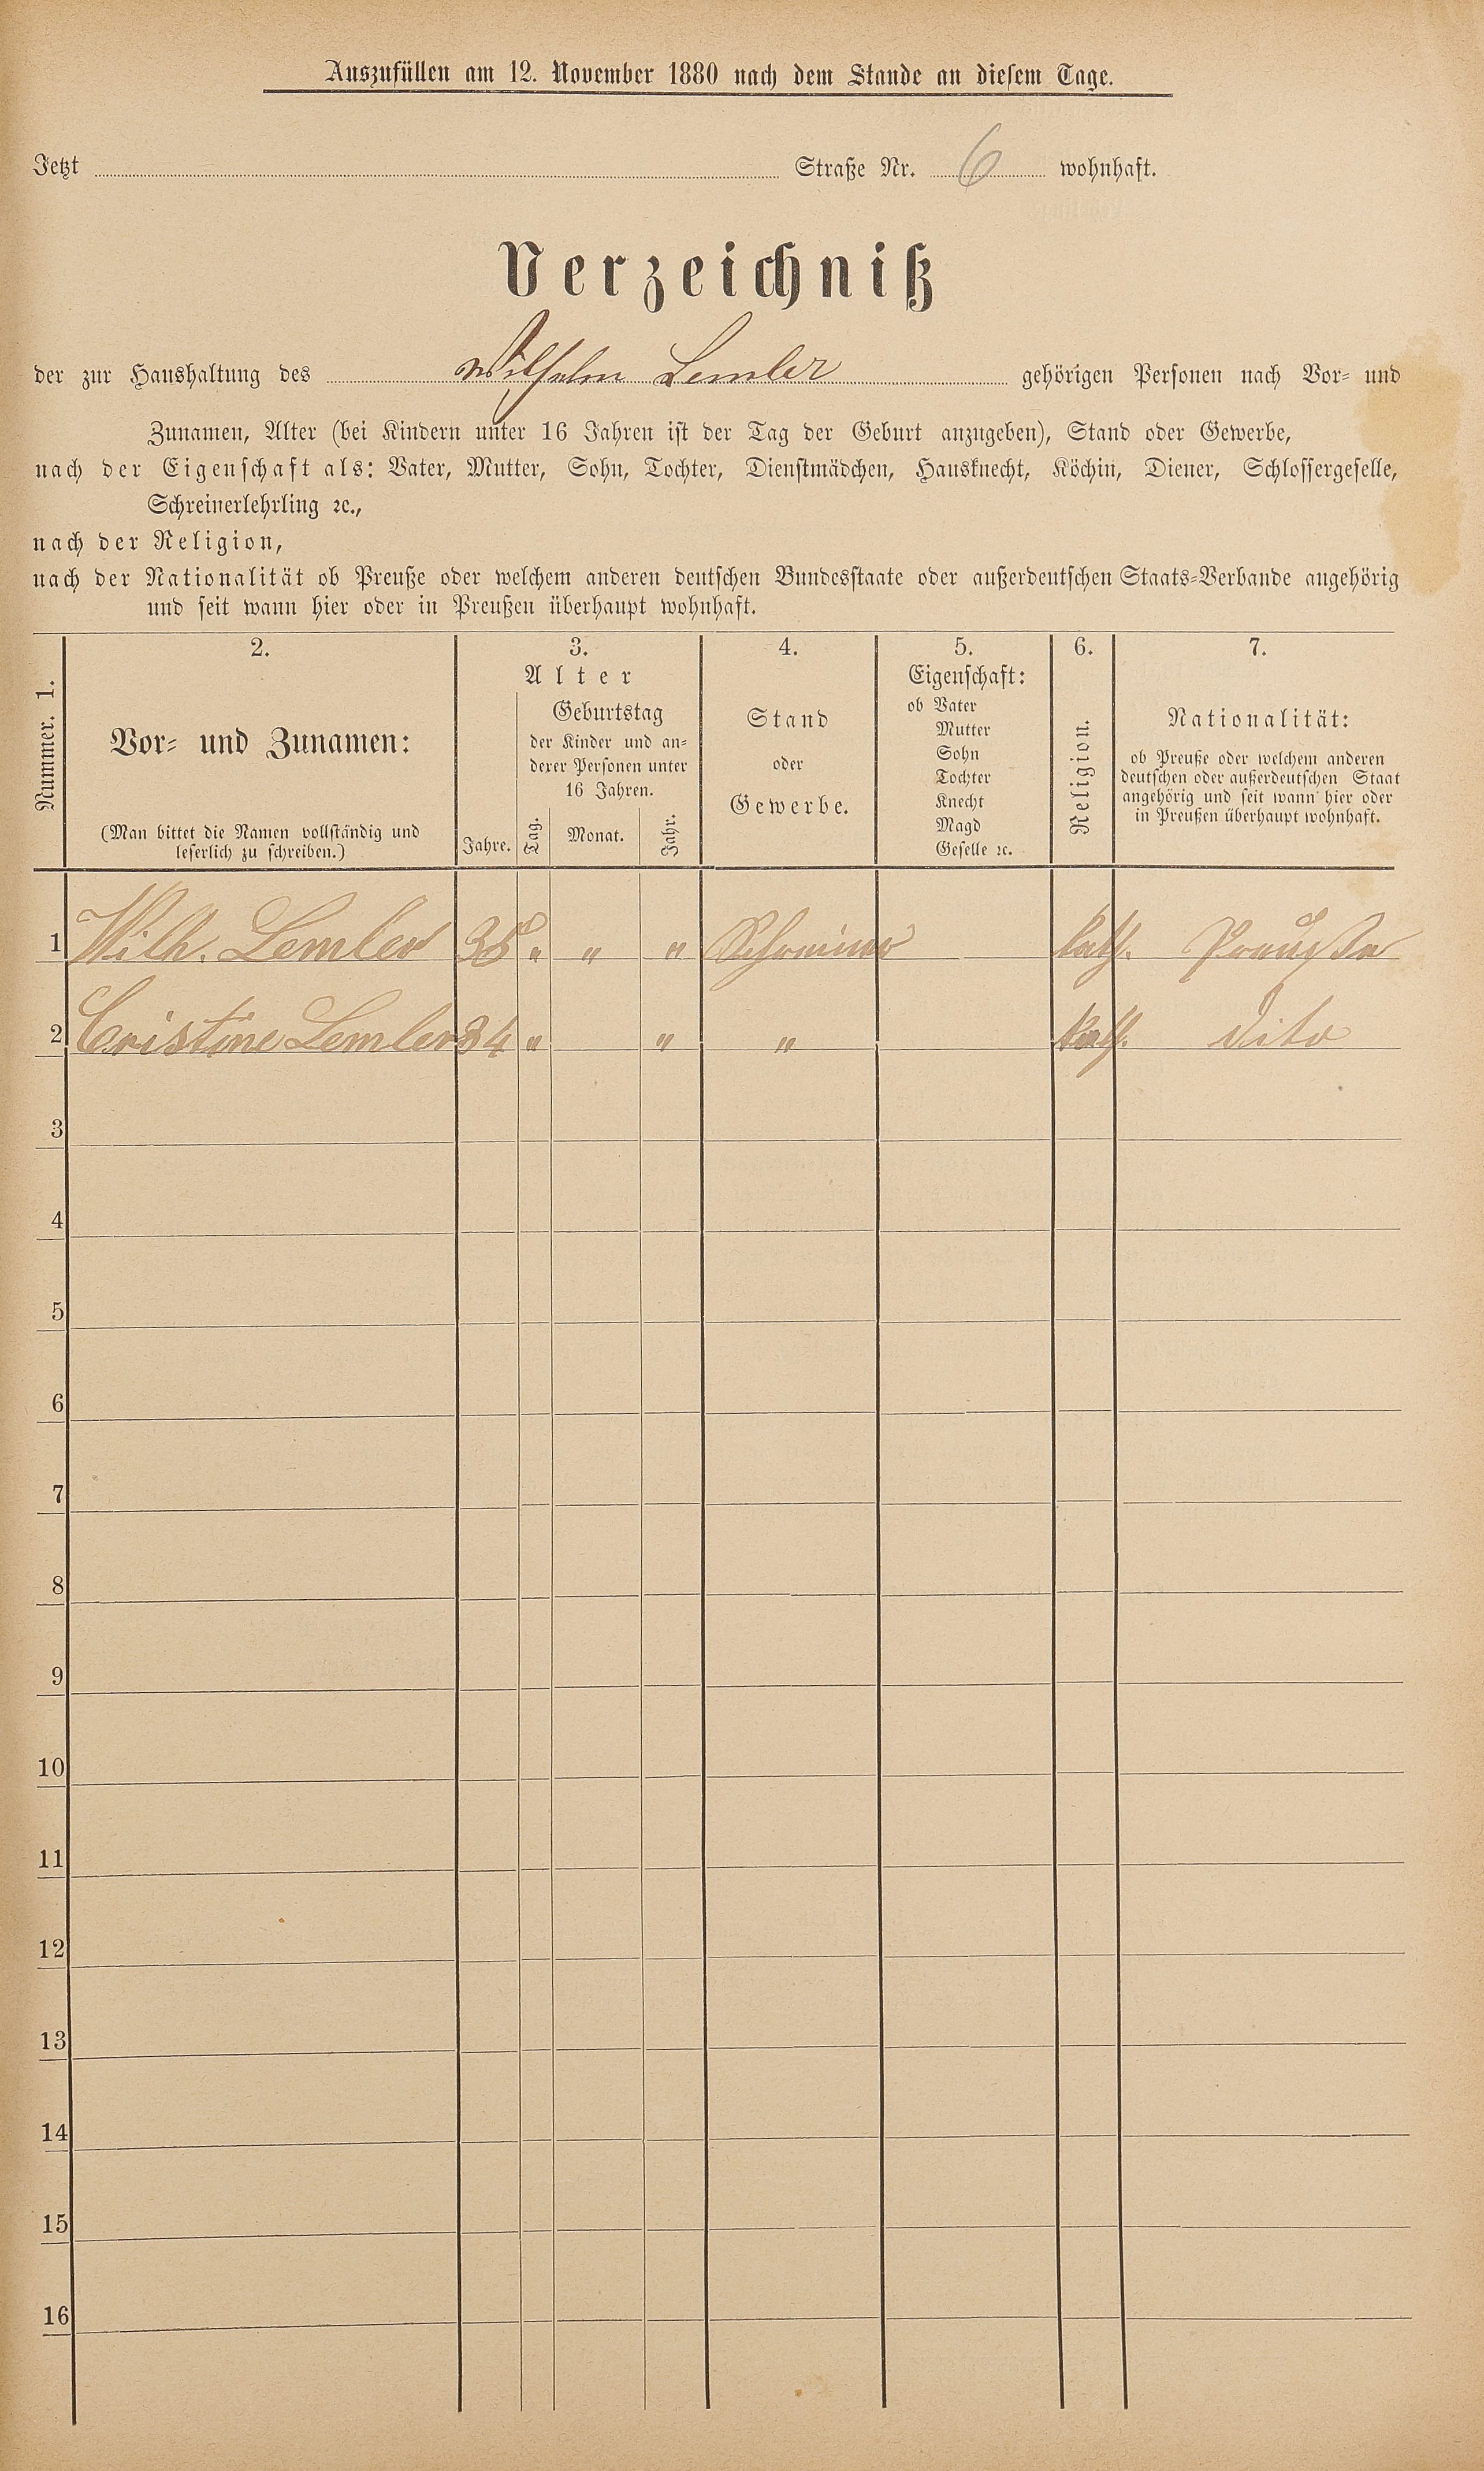 Auszufüllen am 12. November 1880 nach dem Stande an diesem Tage.
Jetzt Straße Nr. 6 wohnhaft.
Verzeichniß
der zur Haushaltung des Wilhelm Lemler gehörigen Personen nach Vor- und
Zunamen, Alter (bei Kindern unter 16 Jahren ist der Tag der Geburt anzugeben), Stand oder Gewerbe,
nach der Eigenschaft als: Vater, Mutter, Sohn, Tochter, Dienstmädchen, Hausknecht, Köchin, Diener, Schlossergeselle,
Schreinerlehrling ꝛc.,
nach der Religion,
nach der Nationalität ob Preuße oder welchem anderen deutschen Bundesstaate oder außerdeutschen Staats-Verbande angehörig
und seit wann hier oder in Preußen überhaupt wohnhaft.
Nummer. 1.
2.
Vor- und Zunamen:
(Man bittet die Namen vollständig und
leserlich zu schreiben.)
3.
Alter
Jahre.
Geburtstag
der Kinder und an-
derer Personen unter
16 Jahren.
Tag. Monat. Jahr.
4.
Stand
oder
Gewerbe.
5.
Eigenschaft:
ob Vater
Mutter
Sohn
Tochter
Knecht
Magd
Geselle ꝛc.
6.
Religion.
7.
Nationalität:
ob Preuße oder welchem anderen
deutschen oder außerdeutschen Staat
angehörig und seit wann hier oder
in Preußen überhaupt wohnhaft.
1 Wilh. Lemler " " " Schreiner kath. Preuße
2 Cristine Lemler 34 " " " kath. dito
3
4
5
6
7
8
9
10
11
12
13
14
15
16